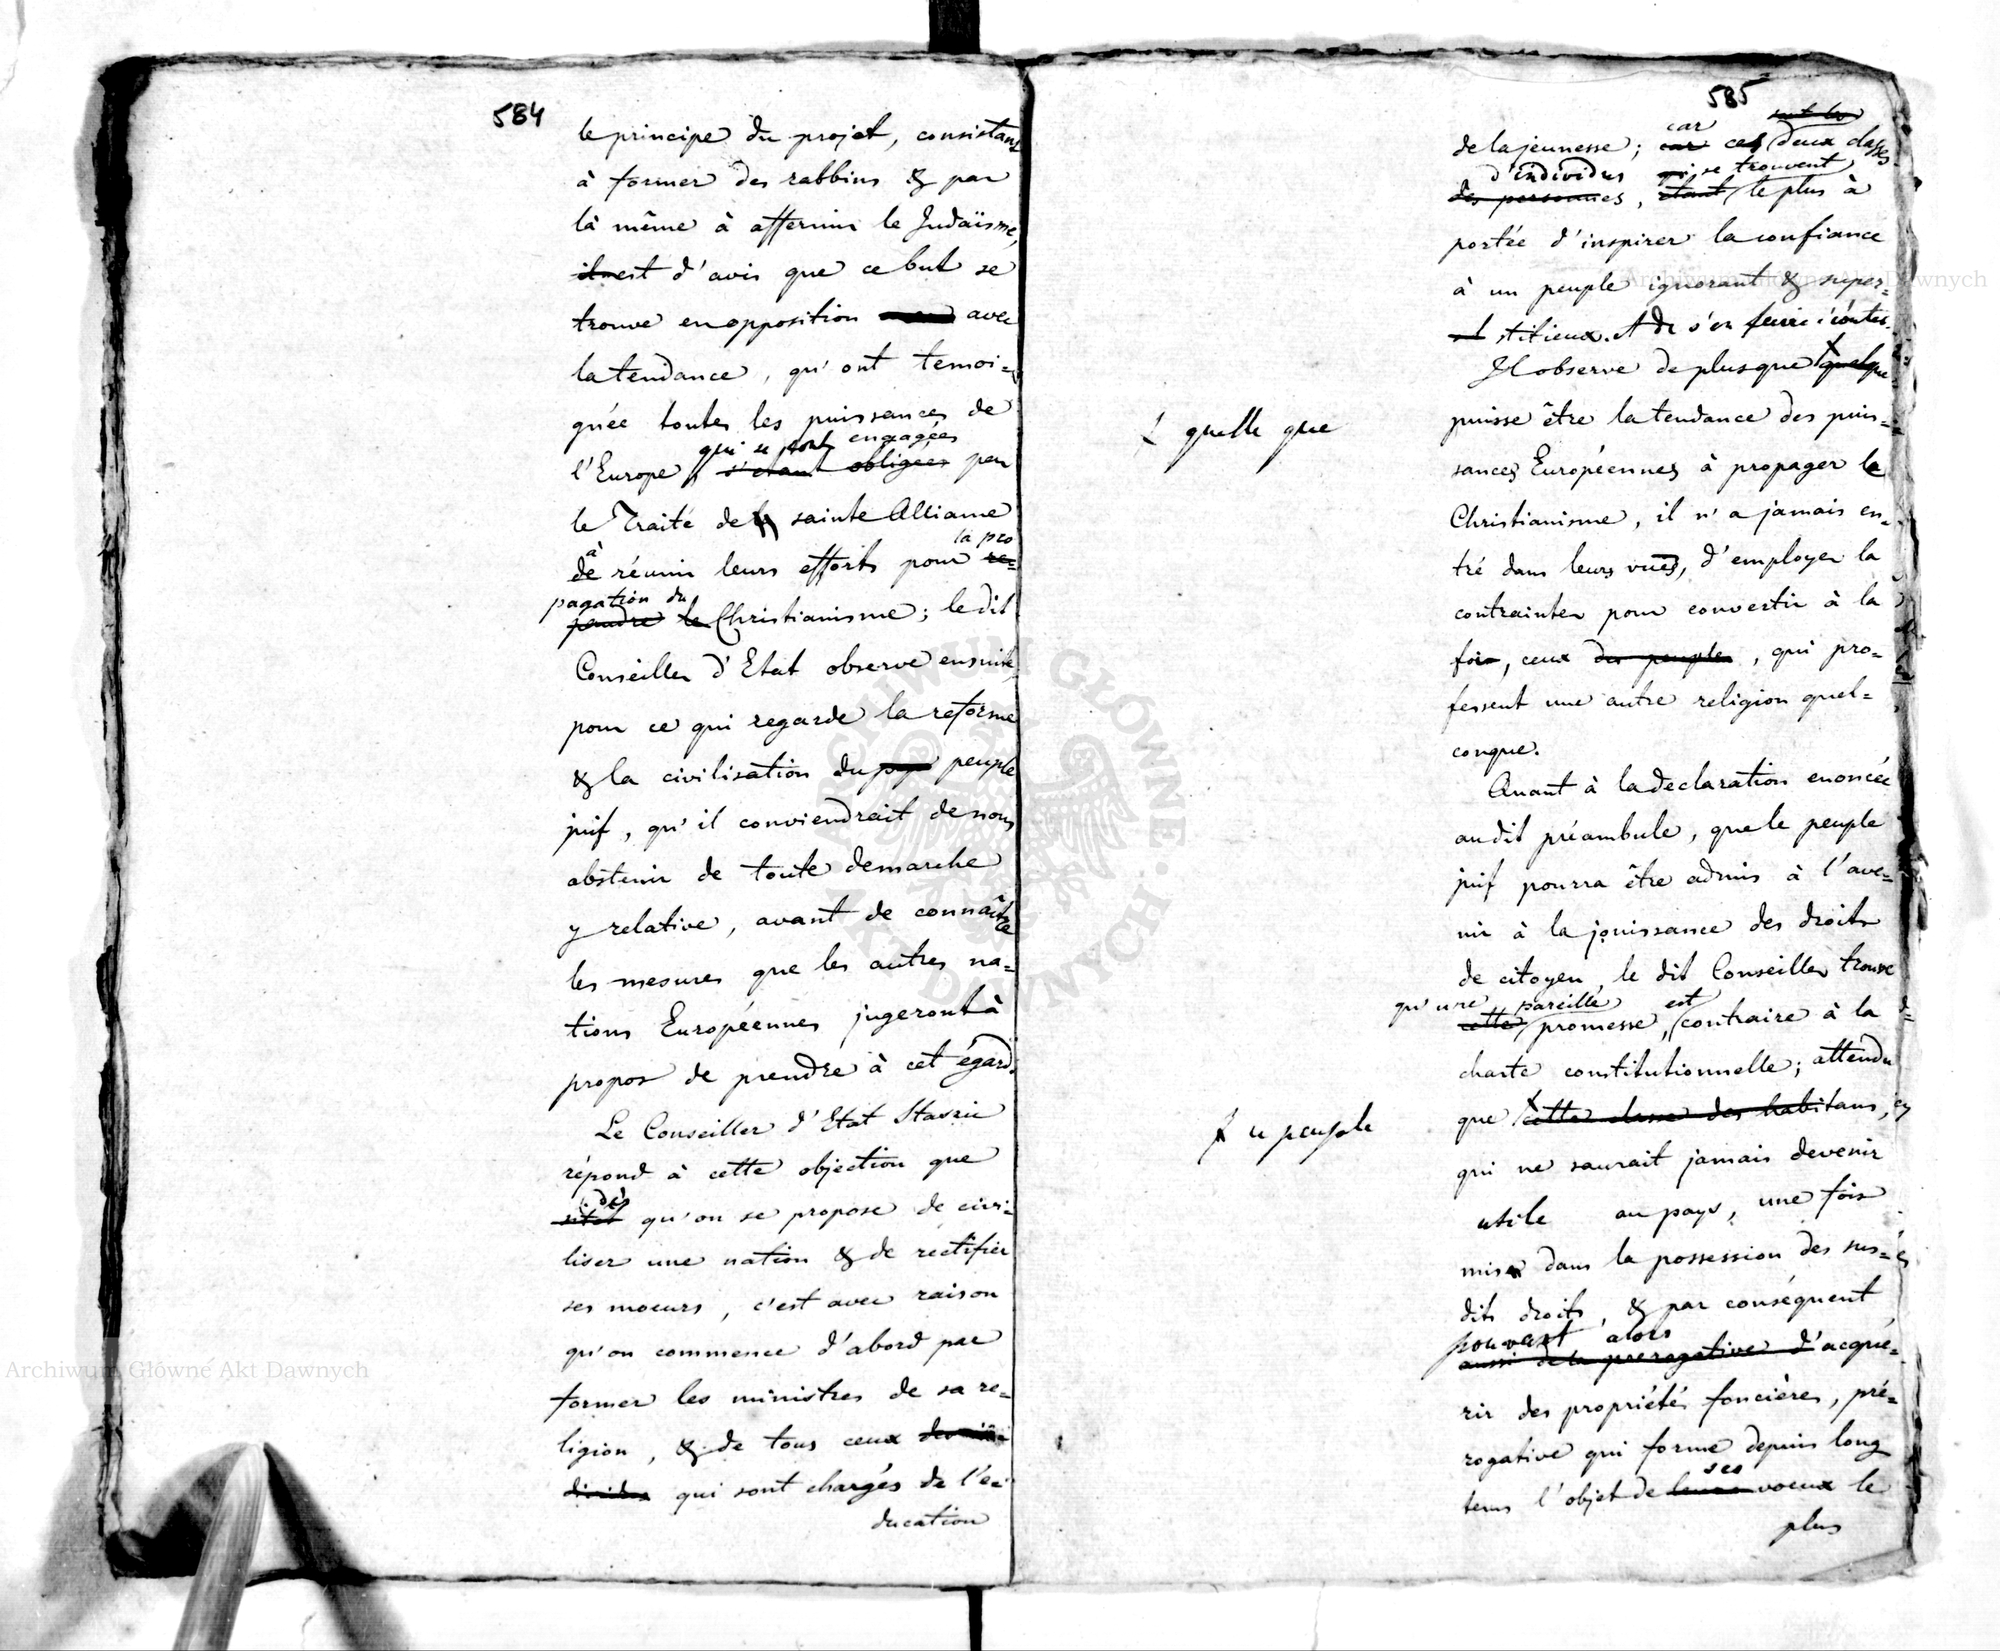 584
le principe du projet, consistant
à former des rabbins & par
là même à affermir le Judaïsme,
il est d'avis que ce but se
trouve en opposition avec
la tendance, qu'ont temoi=
gnée toutes les puissances de
qui se sont engagées
l'Europe s'étant obligées par
le Traité de la sainte Alliance
à la pro
de réunir leurs efforts pour re=
pagation du
pandre le Christianisme; le dit
Conseiller d'Etat observe ensuite,
pour ce qui regarde la reforme
& la civilisation du peuple
juif, qu'il conviendrait de nous
abstenir de toute demarche
y relative, avant de connaître
les mesures que les autres na=
tions Européennes jugeront à
propos de prendre à cet égard.
Le Conseiller d'Etat Staszic
répond à cette objection que
dès
sitôt qu'on se propose de civi=
liser une nation & de rectifier
ses moeurs, c'est avec raison
qu'on commence d'abord par
former les ministres de sa re=
ligion, & de tous ceux
qui sont chargés de l'é=
ducation
585
sont les
car
de la jeunesse; car ces deux classes
d'individus qui se trouvent
des personnes, étant le plus à
portée d'inspirer la confiance
à un peuple ignorant & supers=
stitieux. & de s'en faire écouter.
Il observe de plus que quelque
quelle que
puisse être la tendance des puis=
sances Européennes à propager le
Christianisme, il n'a jamais en=
tré dans leurs vues, d'employer la
contrainte pour convertir à la
foi, ceux des peuples, qui pro=
fessent une autre religion quel=
conque.
Quant à la declaration enoncée
au dit préambule, que le peuple
juif pourra être admis à l'ave=
nir à la jouissance des droits
de citoyen, le dit Conseiller trouve
qu'une pareille est
cette promesse, contraire à la
charte constitutionnelle; attendu
que cette classe des habitans,
ce peuple
qui ne saurait jamais devenir
utile au pays, une fois
mis dans la possession des sus=
dits droits, & par conséquent
pouvant alors
aussi de la prerogative d'acqué=
rir des propriétés foncières, pré=
rogative qui forme depuis long
ses
tems l'objet de leurs voeux le
plus
Archiwum Główne Akt Dawnych
Archiwum Główne Akt Dawnych
ARCHIWUM GŁÓWNE AKT DAWNYCH